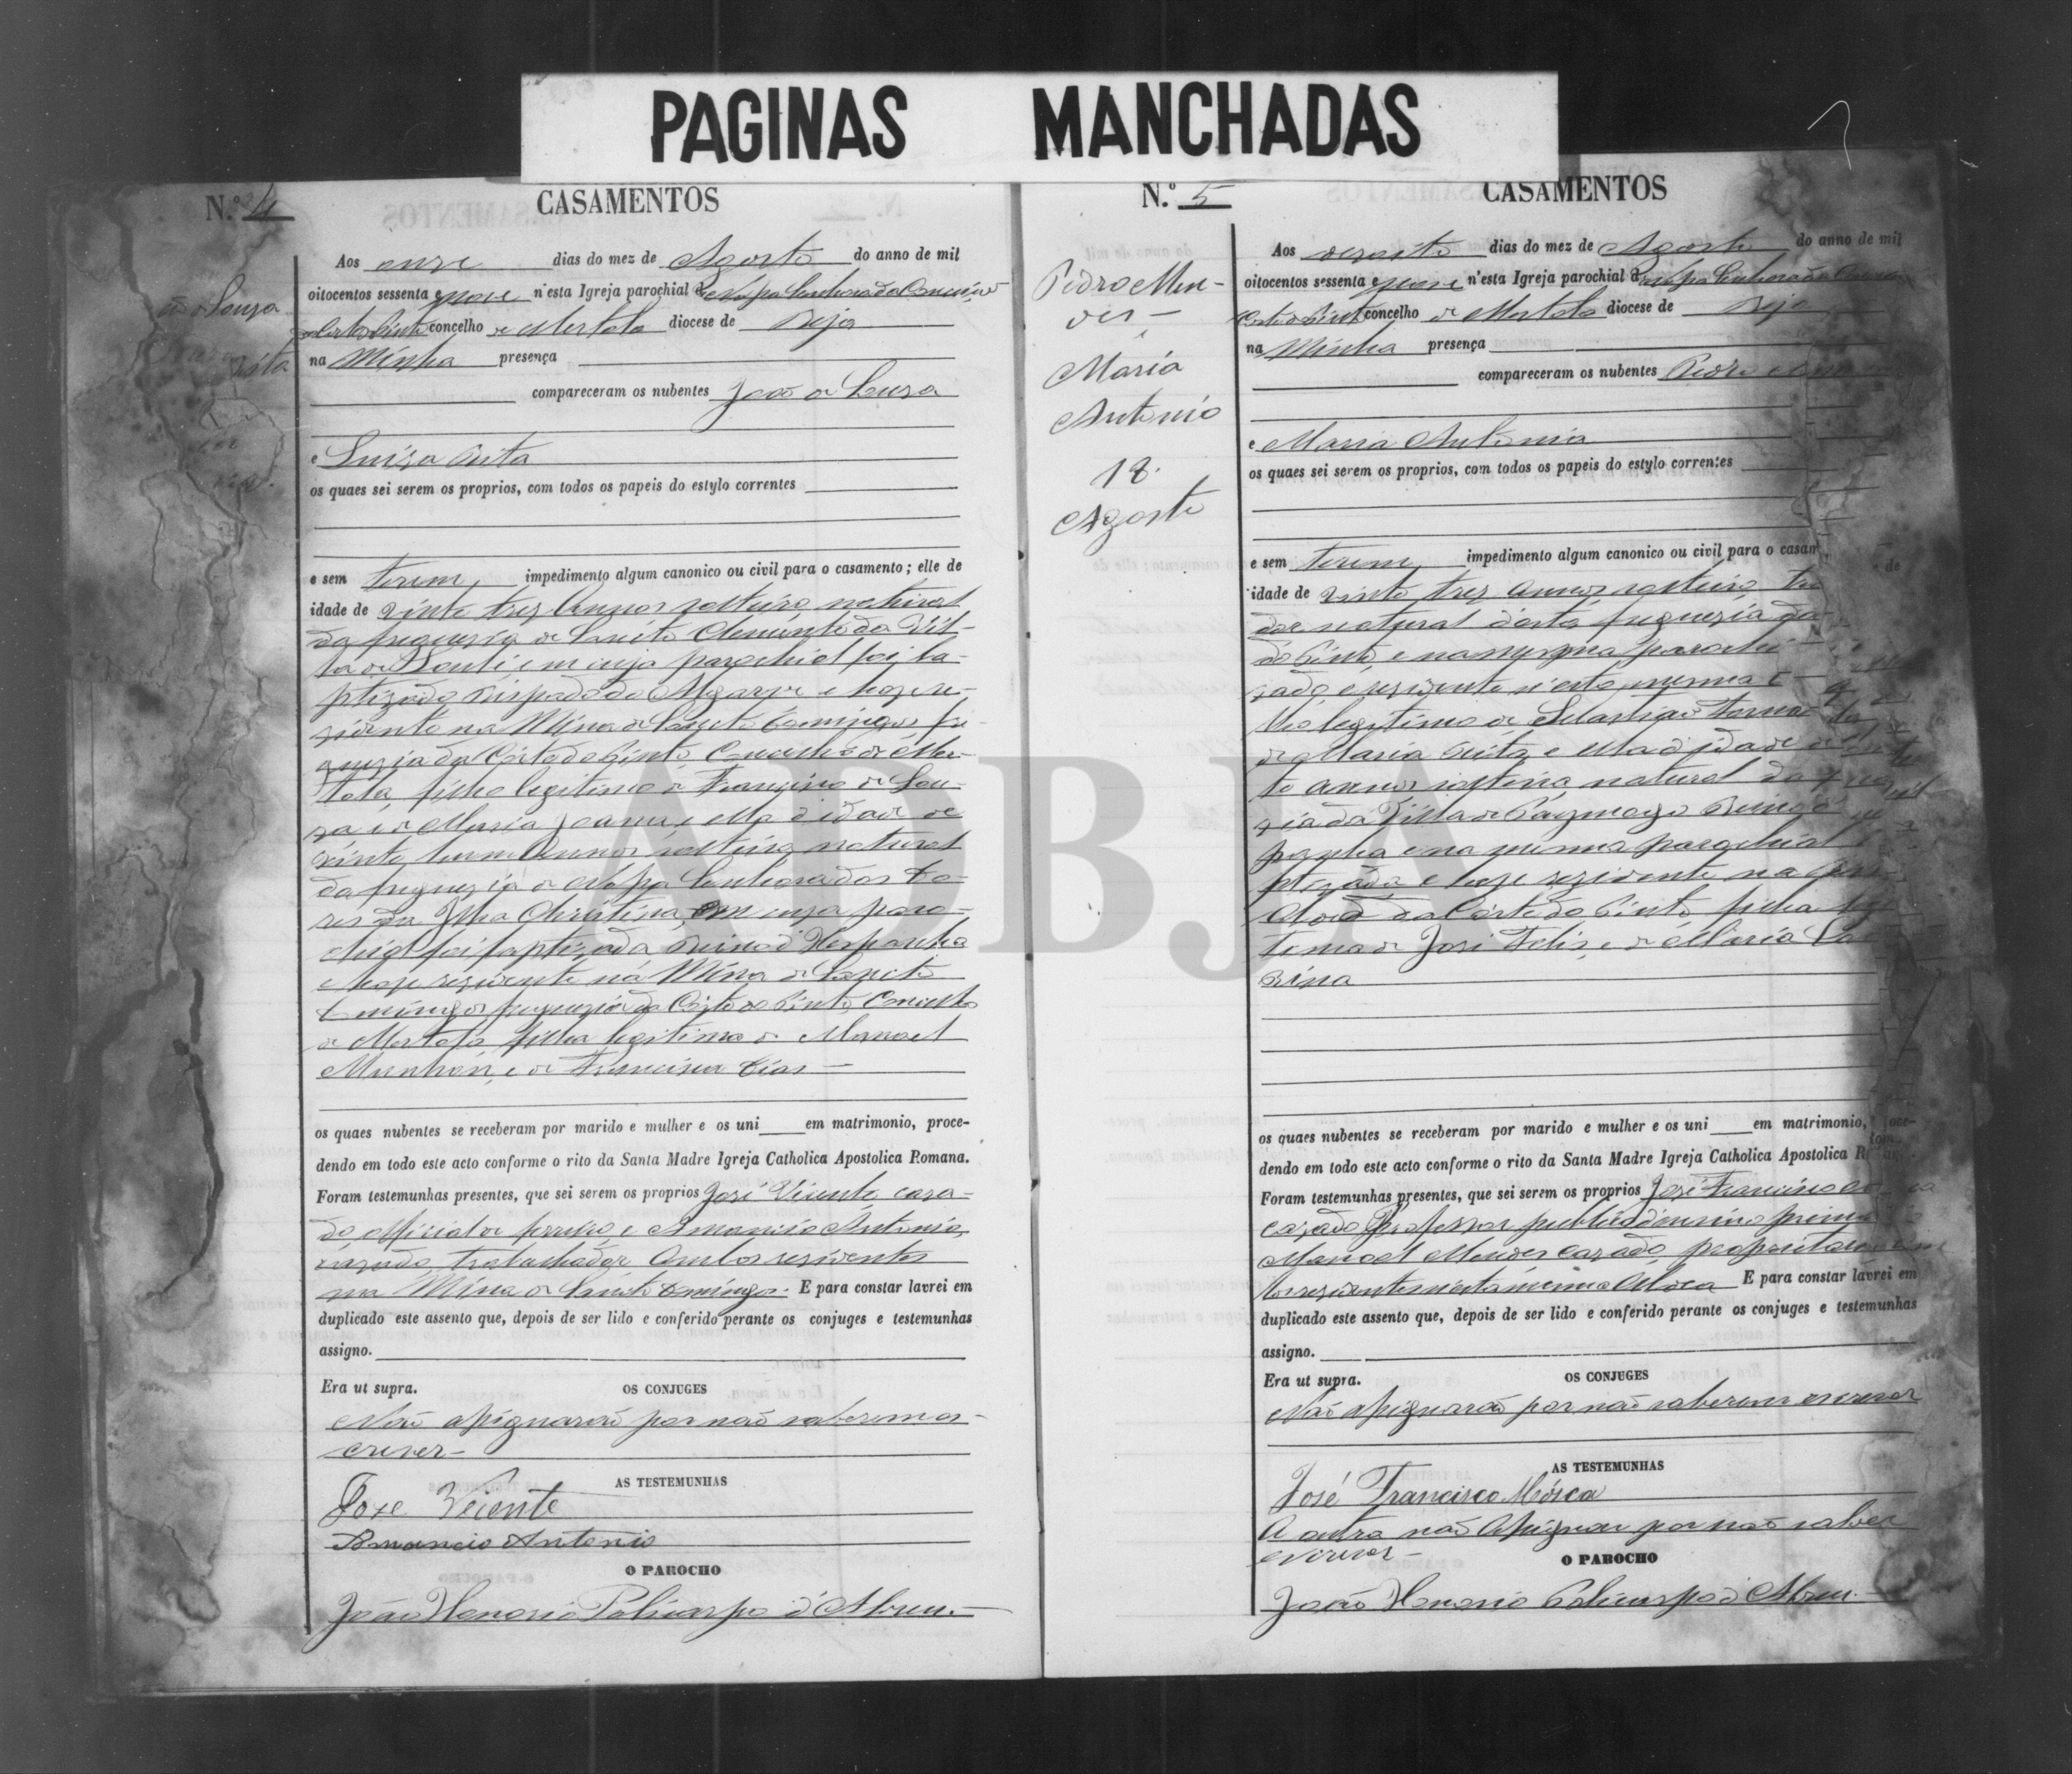 PAGINAS MANCHADAS
N.º 4
CASAMENTOS
Souza
Aos onze dias do mez de Agosto do anno de mil
oitocentos sessenta e nove n'esta Igreja parochial de Nossa Senhora da Conceição
da Corte do Pinto concelho de Mertola diocese de Beja
na Minha presença
compareceram os nubentes João de Souza
e Luiza Rita
os quaes sei serem os proprios, com todos os papeis do estylo correntes
e sem terem impedimento algum canonico ou civil para o casamento; elle de
idade de vinte tres annos solteiro natural
da freguezia de Sancto Clemente da Vil-
la de Loulé em cuja parochial foi ba-
ptizado Bispado do Algarve e hoje re-
zidente na Mina de Sancto Domingos fre-
guezia da Corte do Pinto Concelho de Mer-
tola, filho legitimo de Francisco de Sou-
za e de Maria Joanna, e ella d'idade de
vinte hum annos solteira natural
da freguezia de Nossa Senhora das Do-
res da Ilha Christina, em cuja paro-
chial foi baptizada Reino d'Hespanha
e hoje rezidente na Mina de Sancto
Domingos freguezia da Corte do Pinto, Concelho
de Mertola filha legitima de Manoel
e de Francisca Dias
os quaes nubentes se receberam por marido e mulher e os uni em matrimonio, proce-
dendo em todo este acto conforme o rito da Santa Madre Igreja Catholica Apostolica Romana.
Foram testemunhas presentes, que sei serem os proprios José Vicente, caza-
do, official de ferreiro, e Amancio Antonio,
cazado, trabalhador, ambos rezidentes
na Mina de Sancto Domingos. E para constar lavrei em
duplicado este assento que, depois de ser lido e conferido perante os conjuges e testemunhas
assigno.
Era ut supra. OS CONJUGES
Não assignarão por não saberem es-
crever-
AS TESTEMUNHAS
Joze Vicente
Amancio Antonio
O PAROCHO
João Honorio Policarpo d'Abreu.
N.º 5
CASAMENTOS
Pedro Men-
des-
Maria
Antonio
18
Agosto
Aos dezoito dias do mez de Agosto do anno de mil
oitocentos sessenta e nove n'esta Igreja parochial de Nossa Senhora da
Corte do Pinto concelho de Mertola diocese de Beja
na Minha presença
compareceram os nubentes Pedro
e Maria Antonia
os quaes sei serem os proprios, com todos os papeis do estylo correntes
e sem terem impedimento algum canonico ou civil para o casam de
idade de vinte tres annos solteiro, tra
dor natural d'esta freguezia da
do Pinto, e na mesma parochi
zado, e rezidente n'esta mesma
lho legitimo de Sebastião
de Maria Rita, e ella d'idade de
to annos solteira natural da fre
zia da Villa de Paymogo Reino d
panha e na mesma parochial
ptizada e hoje rezidente na
Aldea da Corte do Pinto, filha legi
tima de José Felis, e de Maria
rina
os quaes nubentes se receberam por marido e mulher e os uni em matrimonio, oce-
dendo em todo este acto conforme o rito da Santa Madre Igreja Catholica Apostolica
Foram testemunhas presentes, que sei serem os proprios José Francisco
cazado, Professor publico d'ensino prima
Manoel Mendes cazado, proprietario
bos rezidentes n'esta mesma Aldea E para constar lavrei em
duplicado este assento que, depois de ser lido e conferido perante os conjuges e testemunhas
assigno.
Era ut supra. OS CONJUGES
Não assignarão por não saberem escrever
AS TESTEMUNHAS
José Francisco Mósca
A outra não assignou por não saber
escrever-
O PAROCHO
João Honorio Policarpo d'Abreu.
ADBJA